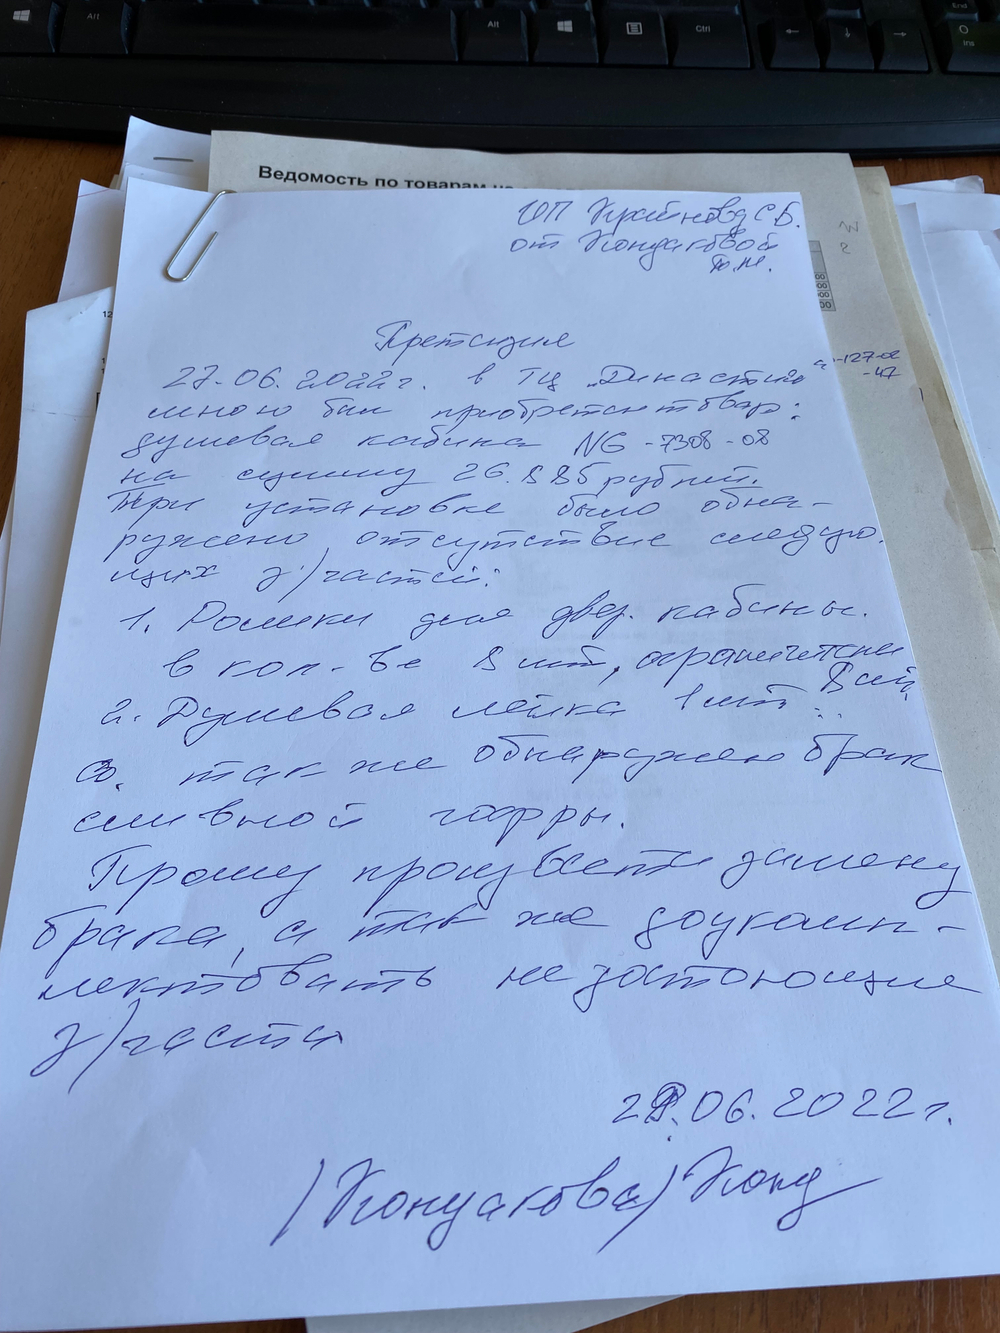 Alt
Alt
Ctrl
End
Ins
Ведомость по товарам
ИП Крайновд С.Б.
от Кондаковой
Ю.Н.
Претензия
27.06.2022г. в ТЦ „Династия
мною был приобретен товар:
душевая кабина NG-7308-08
на сумму 26.885 рублей.
При установке было обна-
ружено отсутствие следую-
щих з/частей:
1. Ролики для двер. кабины.
в кол-ве 8 шт, ограничители
8 шт,
2. Душевая лейка 1 шт
3. так же обнаружен брак
сливной гофры.
Прошу произвести замену
брака, а так же доукомп-
лектовать недостоющие
з/части
28.06.2022г.
/Кондакова/ Конд
-127-02
-47